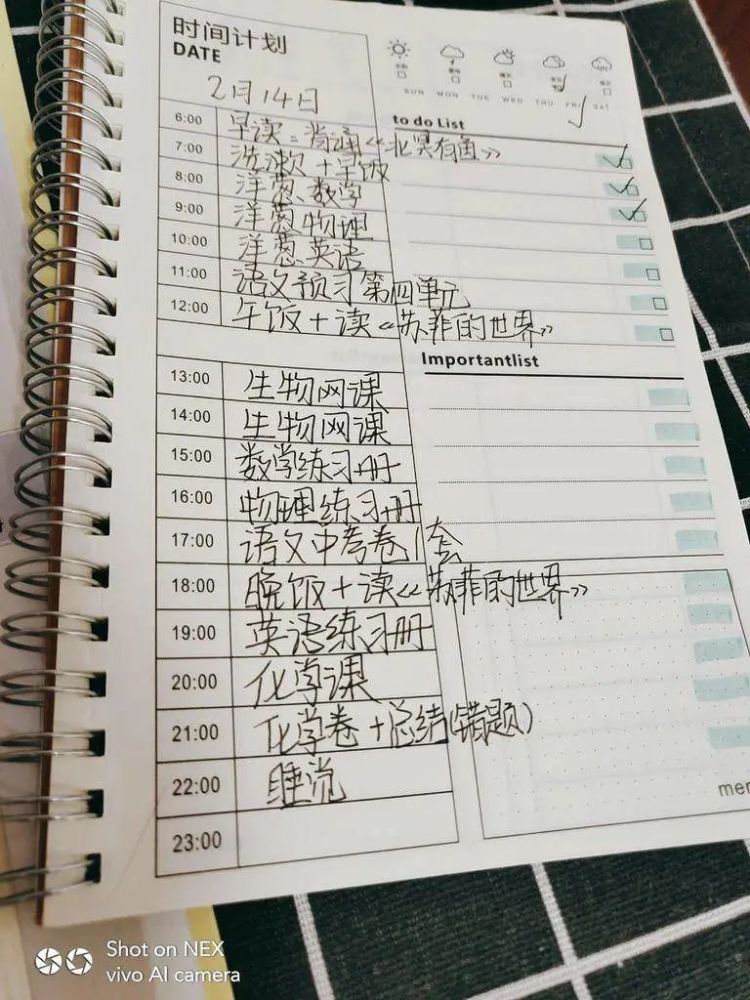 时间计划
DATE
2月14日
SUN MON TUE WED THU FRI SAT
to do List
6:00 早读=背诵《北冥有鱼》
7:00 洗漱+早饭
8:00 洋葱数学
9:00 洋葱物理
10:00 洋葱英语
11:00 语文预习第四单元
12:00 午饭+读《苏菲的世界》
Importantlist
13:00 生物网课
14:00 生物网课
15:00 数学练习册
16:00 物理练习册
17:00 语文中考卷1套
18:00 晚饭+读《苏菲的世界》
19:00 英语练习册
20:00 化学课
21:00 化学卷+总结(错题)
22:00 睡觉
23:00
Shot on NEX
vivo AI camera